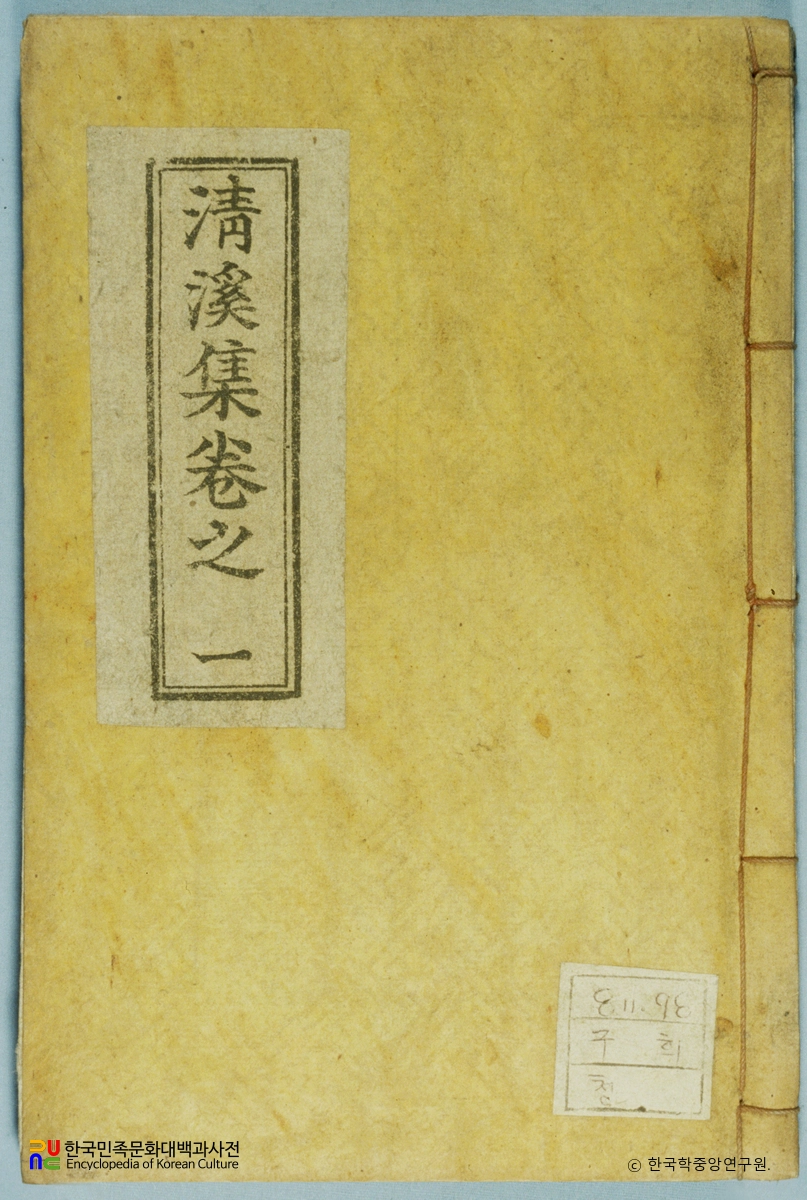 清溪集卷之 一
구 희
철
한국민족문화대백과사전
Encyclopedia of Korean Culture
ⓒ 한국학중앙연구원.